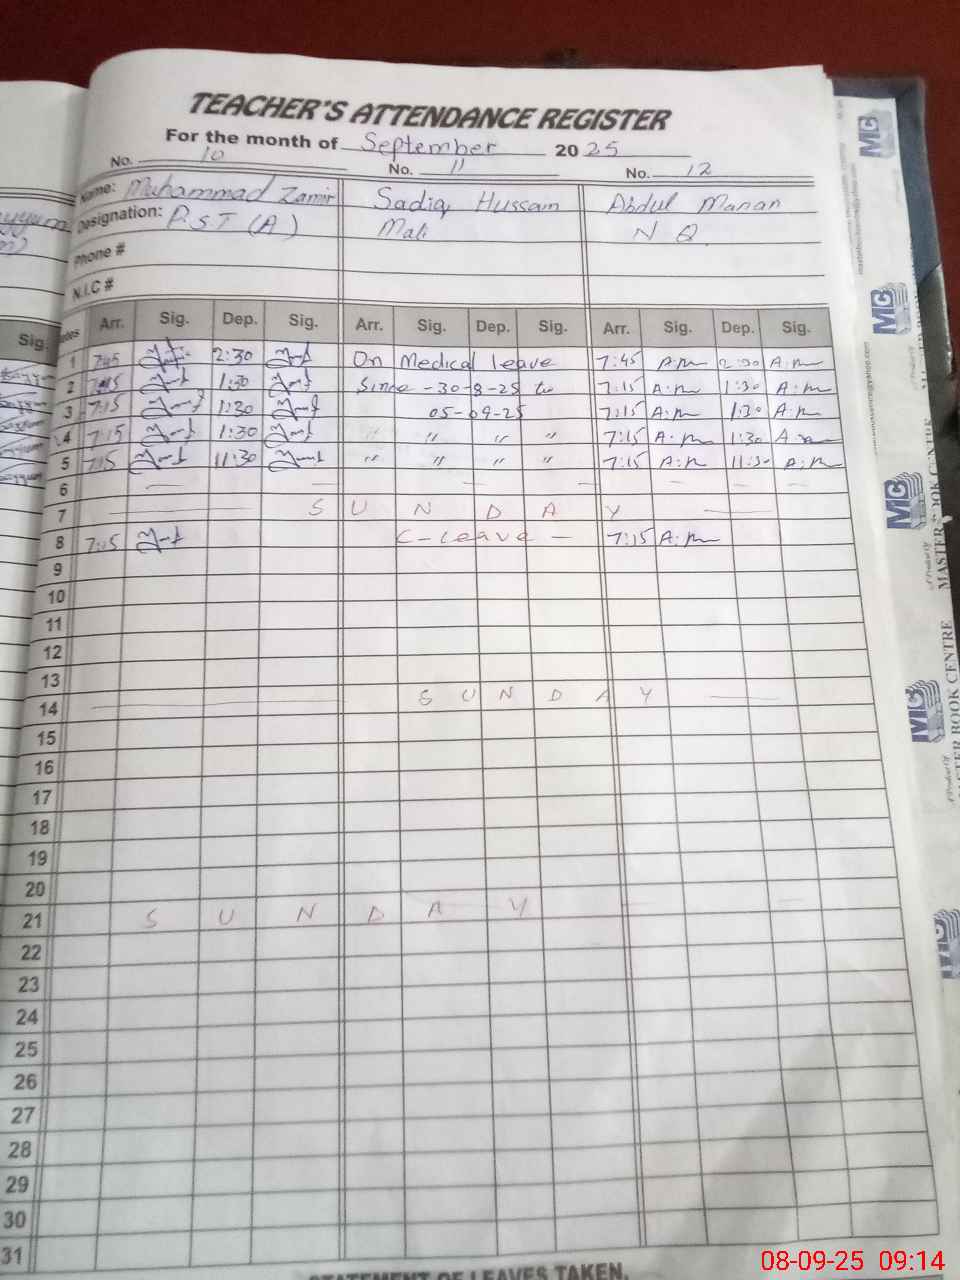 TEACHER'S ATTENDANCE REGISTER
For the month of September 2025
No. 10 No. 11 No. 12
Name: Muhammad Zamir Sadiq Hussain Abdul Manan
Designation: P.S.T (A) Mali N Q
Phone #
N.I.C #
Arr. Sig. Dep. Sig. Arr. Sig. Dep. Sig. Arr. Sig. Dep. Sig.
1 7:45 2:30 On Medical leave 7:45 A.m 2:30 A.m
2 7:15 1:30 Since - 30-8-25 to 7:15 A.m 1:30 A.m
3 7:15 1:30 05-09-25 7:15 A.m 1:30 A.m
4 7:15 1:30 " " " " 7:15 A.m 1:30 A.m
5 7:15 11:30 " " " " 7:15 A.m 11:30 A.m
6
7 SUNDAY
8 7:15 C-Leave - 7:15 A.m
9
10
11
12
13
14 SUNDAY
15
16
17
18
19
20
21 SUNDAY
22
23
24
25
26
27
28
29
30
31
STATEMENT OF LEAVES TAKEN.
MG
MASTER BOOK CENTRE
08-09-25 09:14